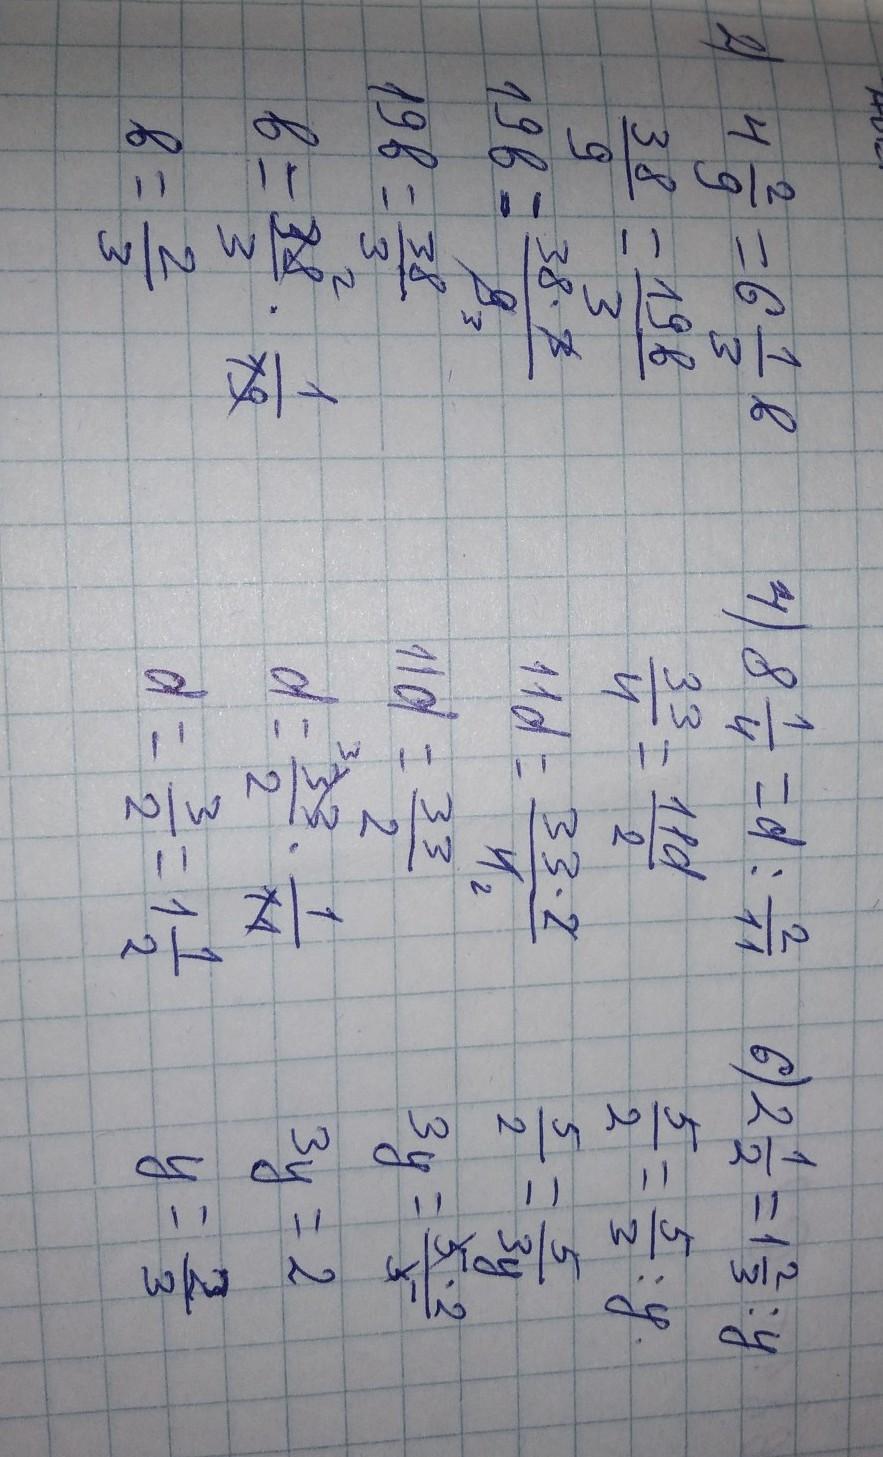 2) 4 2/9 = 6 1/3 b
38/9 = 19b/3
19b = 38·3/9 3
19b = 38/3
b = 38/3 2 · 1/19
b = 2/3
4) 8 1/4 = d : 2/11
33/4 = 11d/2
11d = 33·2/4 2
11d = 33/2
d = 33/2 3 · 1/11
d = 3/2 = 1 1/2
6) 2 1/2 = 1 2/3 : y
5/2 = 5/3 : y
5/2 = 5/3y
3y = 5·2/5
3y = 2
y = 2/3